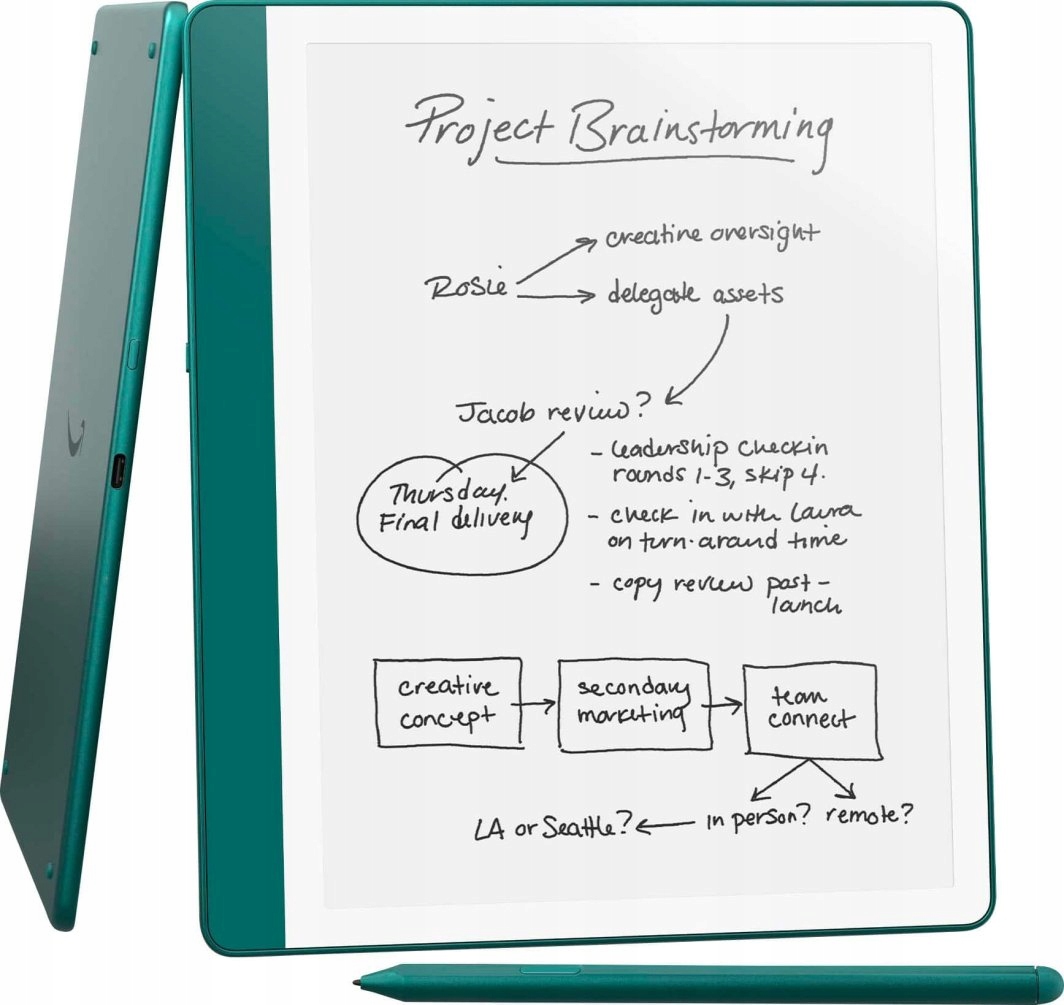 Project Brainstorming
creative oversight
Rosie
delegate assets
Jacob review?
Thursday.
Final delivery
- leadership checkin
rounds 1-3, skip 4.
- check in with Laura
on turn-around time
- copy review post-
launch
creative
concept
secondary
marketing
team
connect
LA or Seattle?
in person?
remote?